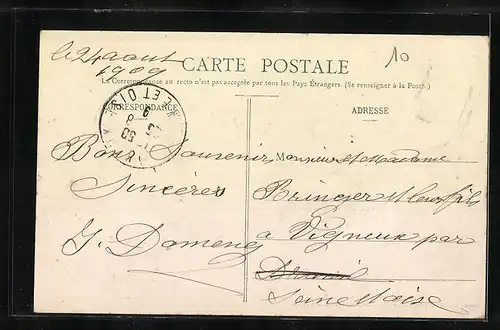 le 24 aout
1909
10
CARTE POSTALE
La Correspondance au recto n'est pas acceptée par tous les Pays Étrangers. (Se renseigner à la Poste.)
CORRESPONDANCE
ADRESSE
ET OISE
Bons Souvenirs
Sincères
J. Domeng
Monsieur et Madame
Bringer et leur fils
à Vigneux par
Seine et Oise